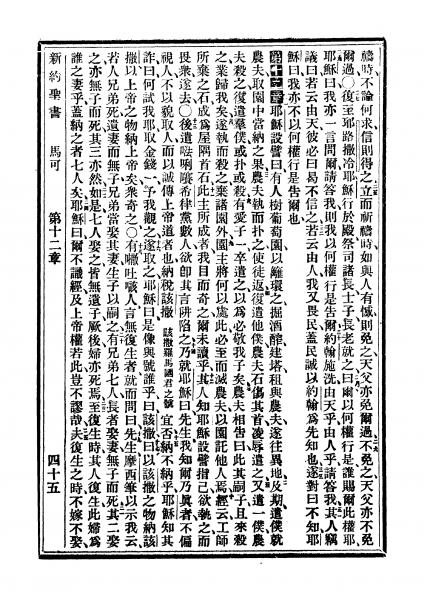 禱時不論何求信則得之立而祈禱時如與人有憾則免之天父亦免爾過不免之天父亦不免
爾過○復至耶路撒冷耶穌行於殿祭司諸長士子長老就之曰爾以何權行是誰賜爾此權耶
耶穌曰我亦一言問爾請答我則我以何權行是告爾約翰施洗由天乎由人乎請答我其人竊
議曰若云由天彼必曰曷不信之若云由人我又畏民蓋民誠以約翰為先知也遂對曰不知耶
穌曰我亦不以何權行是告爾也
第十二章耶穌設譬曰有人樹葡萄園以籬環之掘酒醡建塔租與農夫遂往異地及期遣僕就
農夫取園中當納之果農夫執而扑之使徒返復遣他僕農夫石傷其首凌辱遣之又遣一僕農
夫殺之復遣羣僕或扑或殺有愛子一卒遣之以為必敬我子矣農夫相告曰此其嗣子且來殺
之業歸我矣遂執而殺之棄諸園外園主將何以處此必至而滅農夫以園託他人焉經云工師
所棄之石成為屋隅首石此主所成者我目而奇之爾未讀乎其人知耶穌設譬指己欲執之而
畏衆遂去○後遣唎希律黨數人欲即其言阱陷之乃就耶穌曰先生我知爾乃眞者不偏
視人不以貌取人而以誠傳上帝道者也納稅該撒該撒羅馬國君之號宜否納不納乎耶穌知其
詐曰何試我耶取金錢一予我觀之遂取之耶穌曰是像與號誰乎曰該撒曰以該撒之物納該
撒以上帝之物納上帝矣衆奇之○有吐人言無復生者就而問曰先生摩西筆以示我云
若人兄弟死遺妻而無子兄弟當娶其妻生子以嗣之有兄弟七人長者娶妻無子而死其二娶
之亦無子而死其三亦然如是七人娶之皆無遺子厥後婦亦死焉至復生時其人復生此婦為
誰之妻乎蓋納之者七人矣耶穌曰爾不識經及上帝權若此豈不謬哉夫復生之時不嫁不娶
新約聖書 馬可 第十二章 四十五